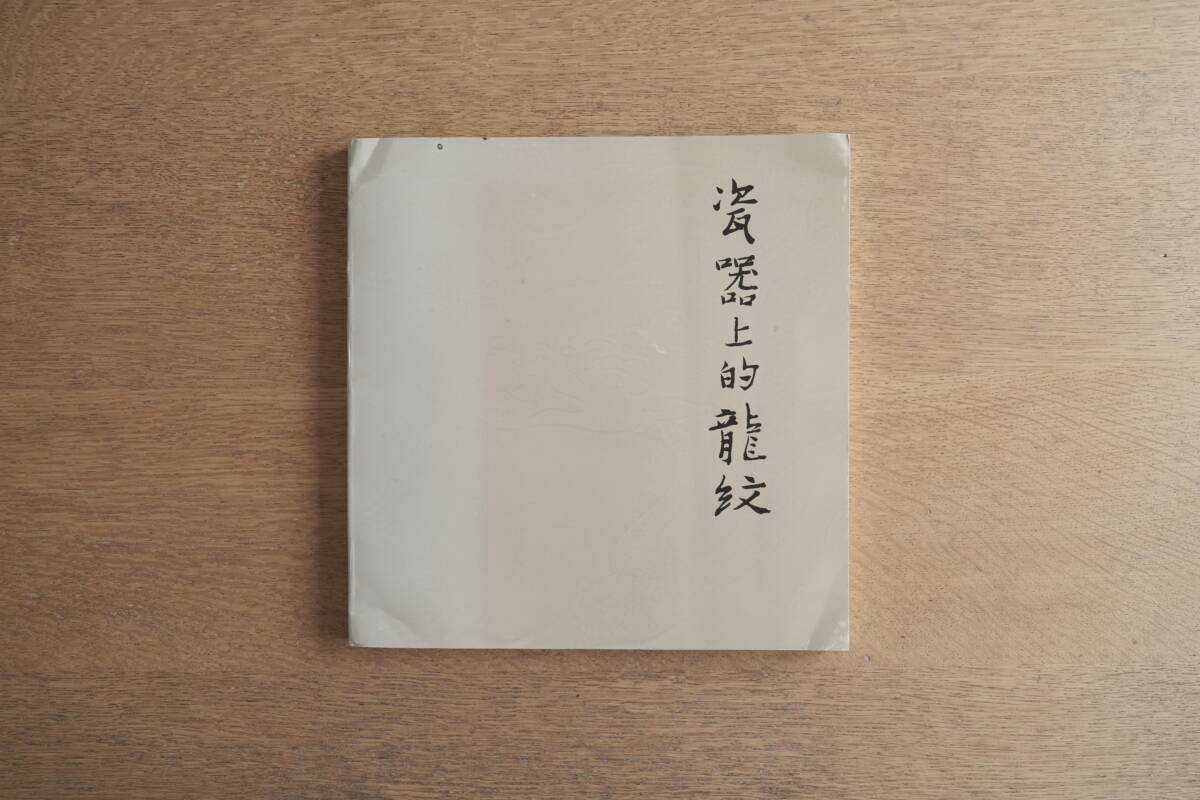 瓷器上的龍紋